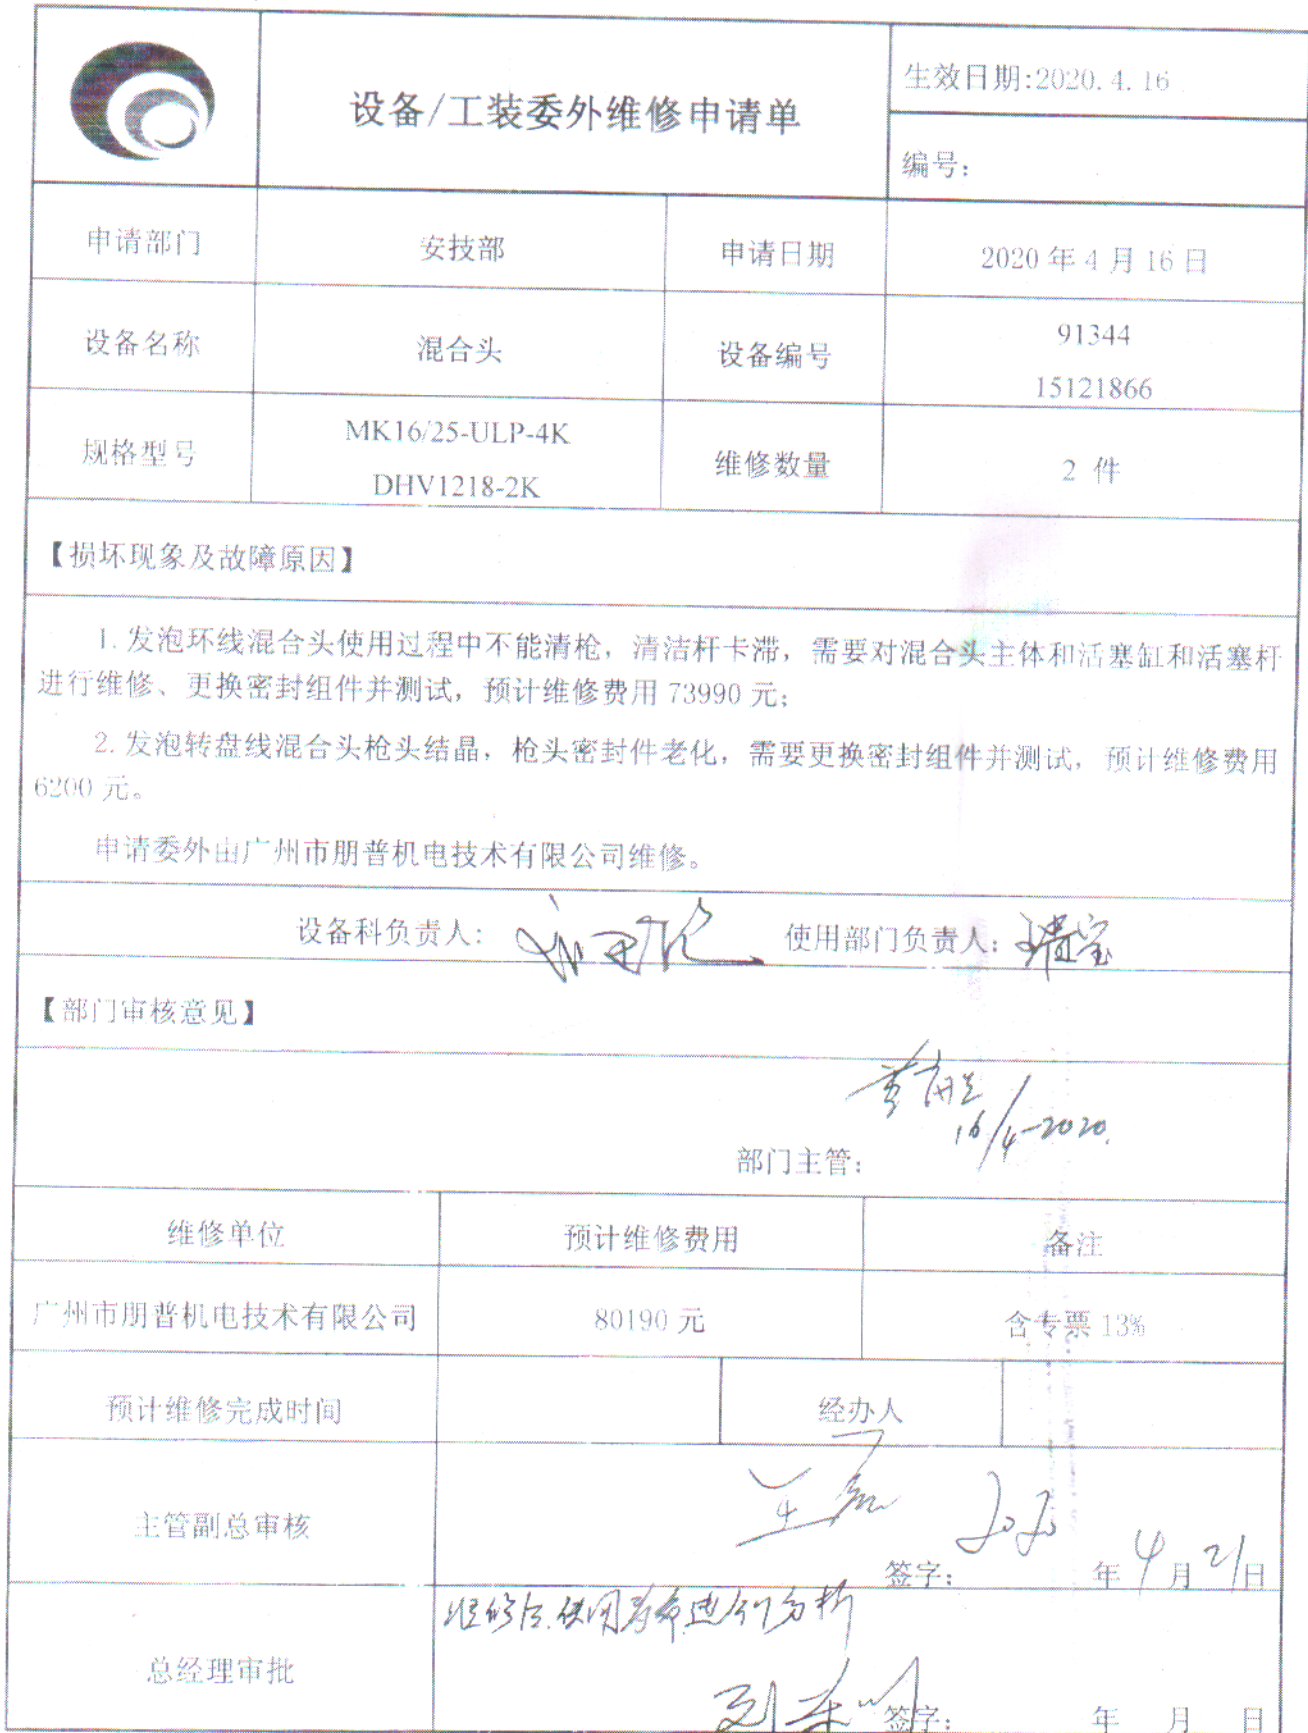 设备/工装委外维修申请单
生效日期:2020.4.16
编号:
申请部门 安技部 申请日期 2020 年 4 月 16 日
设备名称 混合头 设备编号 91344
15121866
规格型号 MK16/25-ULP-4K
DHV1218-2K 维修数量 2 件
【损坏现象及故障原因】
1. 发泡环线混合头使用过程中不能清枪，清洁杆卡滞，需要对混合头主体和活塞缸和活塞杆
进行维修、更换密封组件并测试，预计维修费用 73990 元；
2. 发泡转盘线混合头枪头结晶，枪头密封件老化，需要更换密封组件并测试，预计维修费用
6200 元。
申请委外由广州市朋普机电技术有限公司维修。
设备科负责人: 使用部门负责人:
【部门审核意见】
16/4-2020.
部门主管:
维修单位 预计维修费用 备注
广州市朋普机电技术有限公司 80190 元 含专票 13%
预计维修完成时间 经办人
主管副总审核 签字: 2020 年 4 月 21 日
维修后使用寿命进行分析
总经理审批 签字: 年 月 日